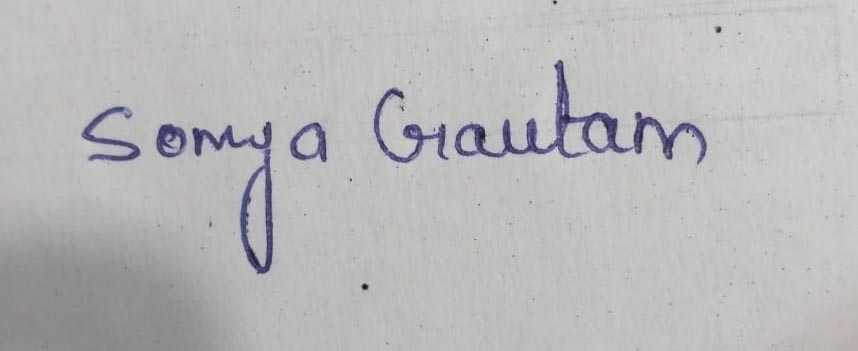 Somya Gautam